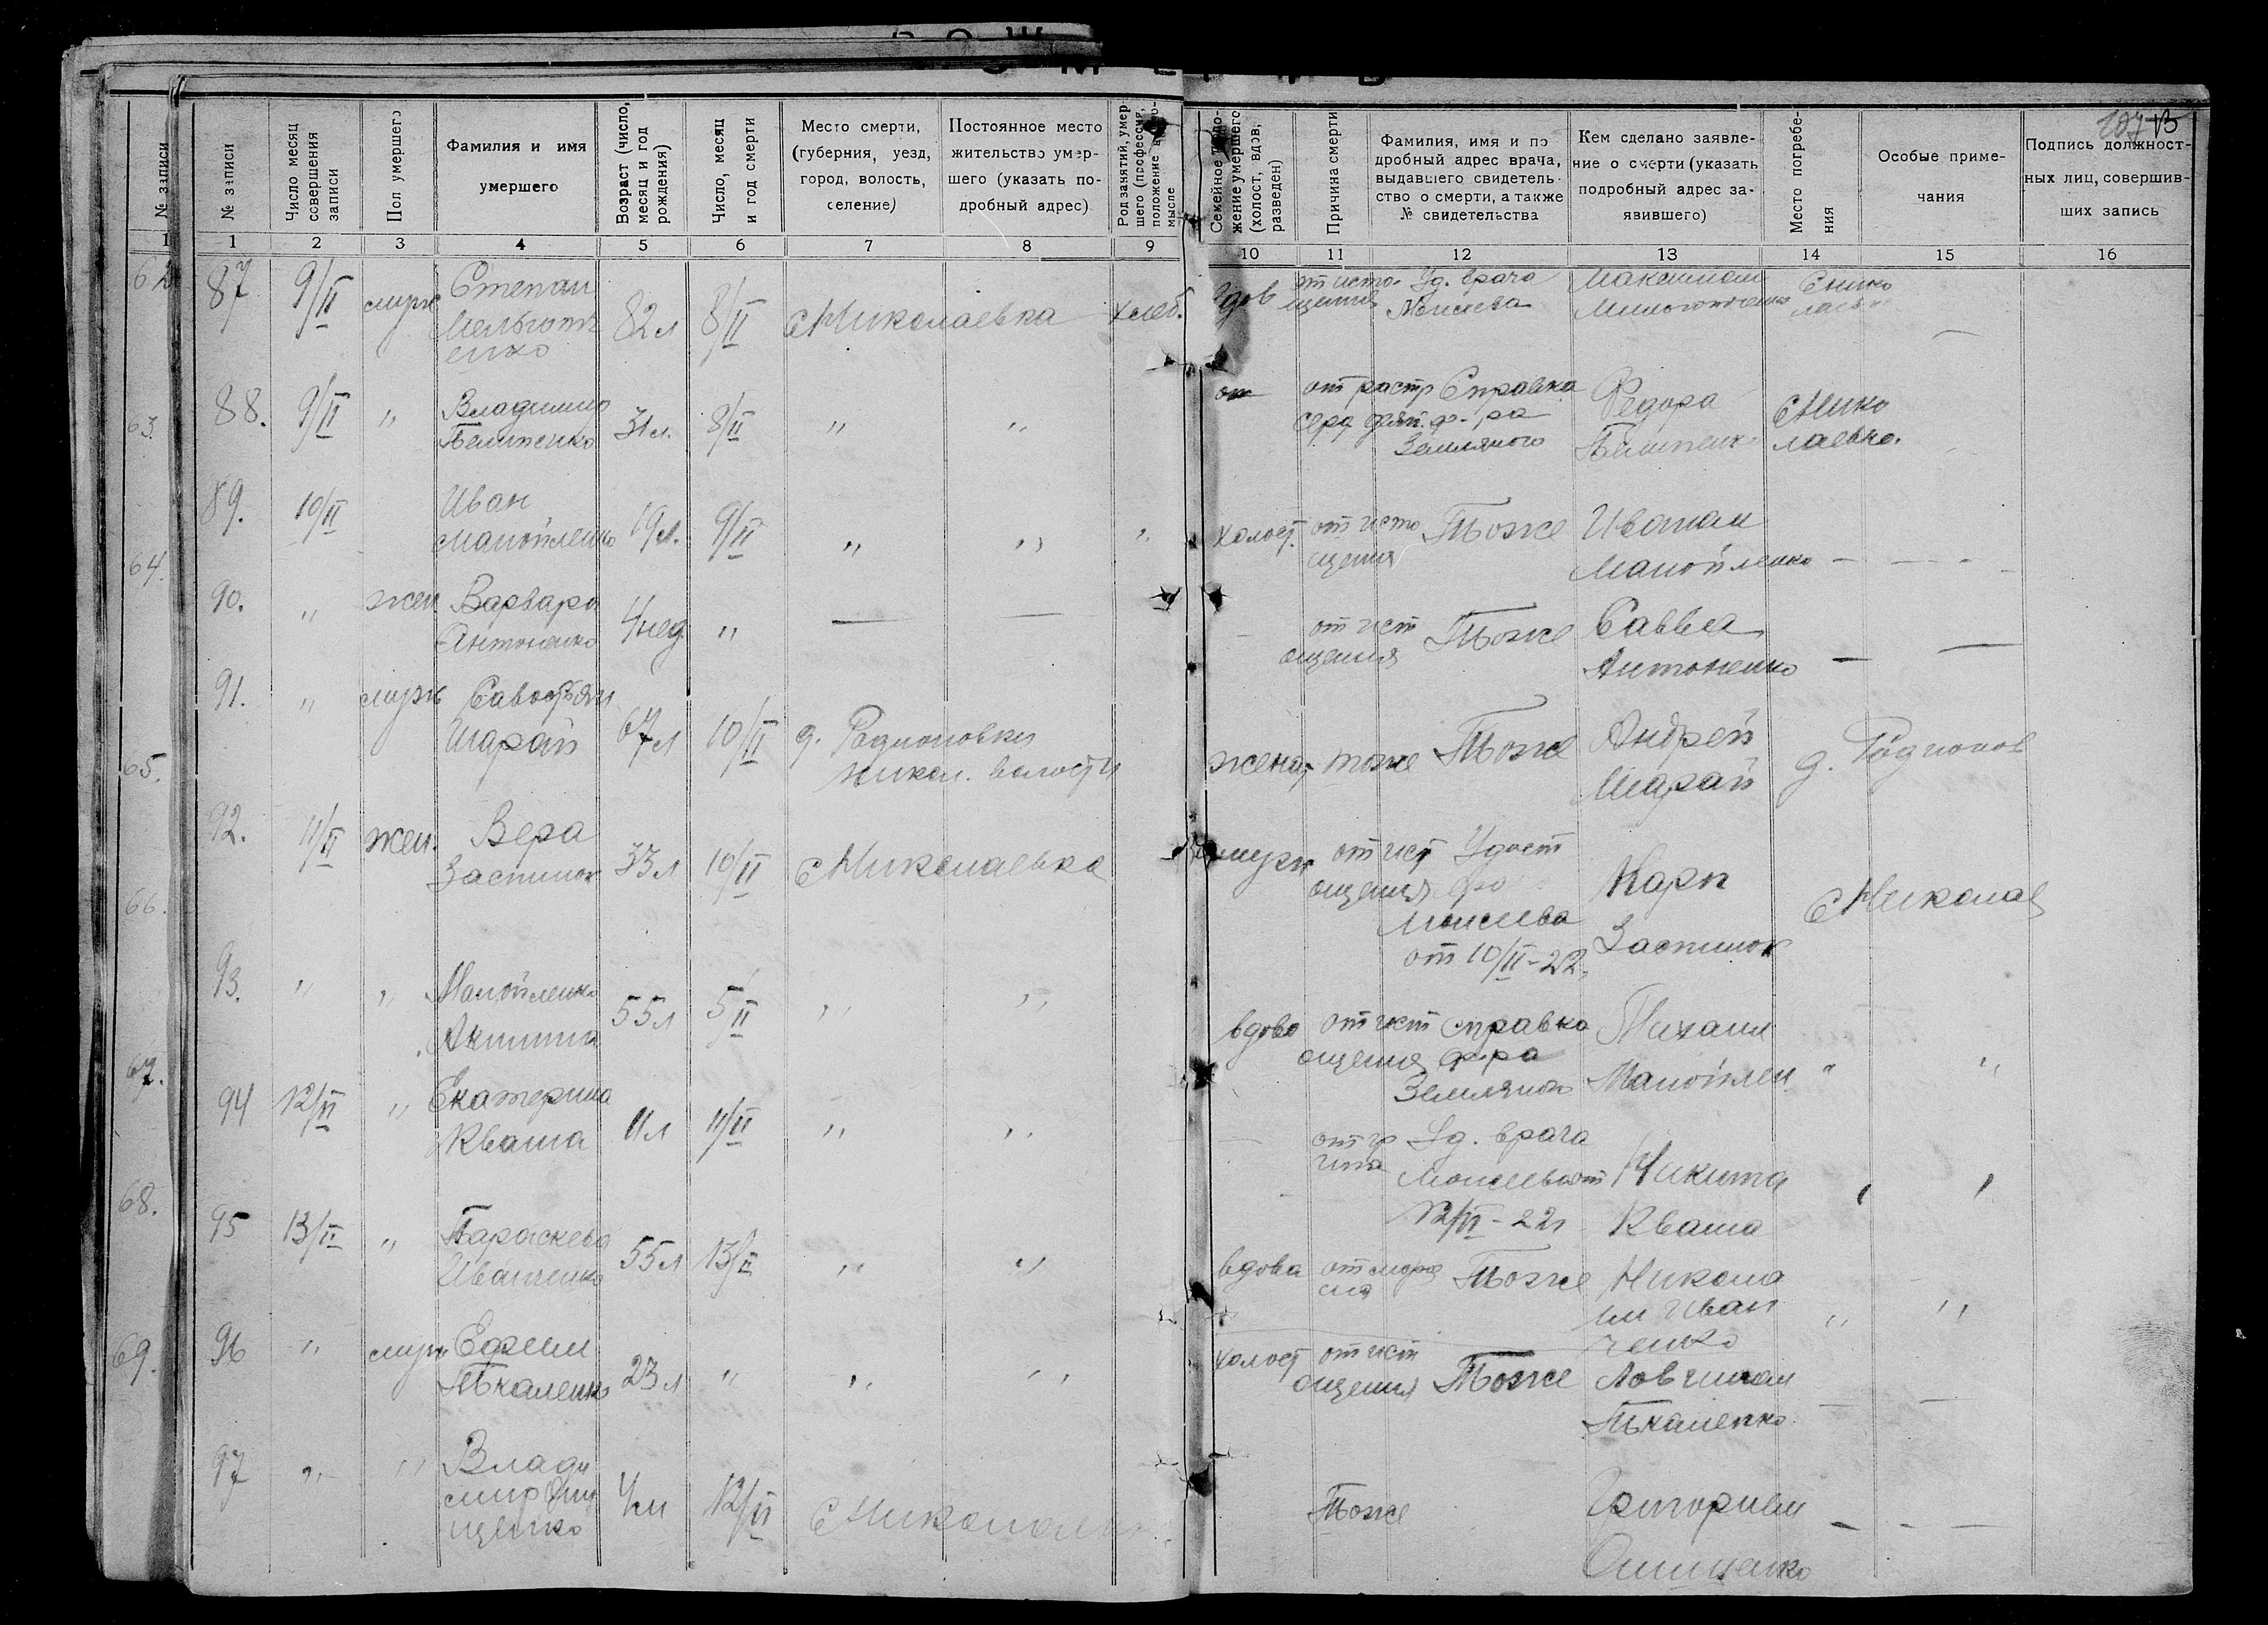 № записи
№ записи
Число месяц совершения записи
Пол умершего
Фамилия и имя умершего
Возраст (число, месяц и год рождения)
Число, месяц и год смерти
Место смерти, (губерния, уезд, город, волость, селение)
Постоянное место жительство умершего (указать подробный адрес)
Род занятий, умершего (профессия, положение в промысле
Семейное положение умершего (холост, вдов, разведен)
Причина смерти
Фамилия, имя и подробный адрес врача, выдавшего свидетельство о смерти, а также № свидетельства
Кем сделано заявление о смерти (указать подробный адрес заявившего)
Место погребения
Особые примечания
Подпись должностных лиц, совершивших запись
1 1 2 3 4 5 6 7 8 9 10 11 12 13 14 15 16
63.
64.
65.
66.
67.
68.
69.
87 9/II муж Степан
82 л 8/II с Николаевка хлеб.
вдов от исто- Уд. врача
щения Моисеева
88. 9/II " Владимир
31 л. 8/II " "
от растр Справка Федора с Нико
серд деят. ф-ра лаевка.
Земляного
89. 10/II Иван
Манойленко 19 л. 9/II " " "
холост. от исто Тоже Иваном
щения Манойленко - - - -
90. " жен Варвара
Антоненко 4 нед. " — —
от ист Тоже Савва
ощения Антоненко — —
91. " муж Савостьян
Шарай 67 л 10/II д. Родионовки
никол. волости
женат тоже Тоже Андрей д. Родионов
Шарай
92. 11/II жен. Вера
33 л 10/II с Николаевка
замуж от ист Удост Карп с Николаев
ощения
Моисеева
от 10/II-22.
93. " " Манойленко
Акилина 55 л 5/II " "
вдова от ист справка Михаил
ощения ф-ра Манойлен " "
Земляного
94 12/II " Екатерина
Кваша 11 л 11/II " "
Уд. врача
Моисеева от Никита
12/II-22 г Кваша
95 13/II " Параскева
Иванченко 55 л 13/II " "
вдова Тоже Никола
ем Иван " "
ченко
96 " муж Ефим
Ткаленко 23 л " " "
холост от ист
ощения Тоже
Ткаленко — —
97 " " Влади
мир Они
щенко 4 м 12/II с Николаев
Тоже Григорием - - —
Онищенко